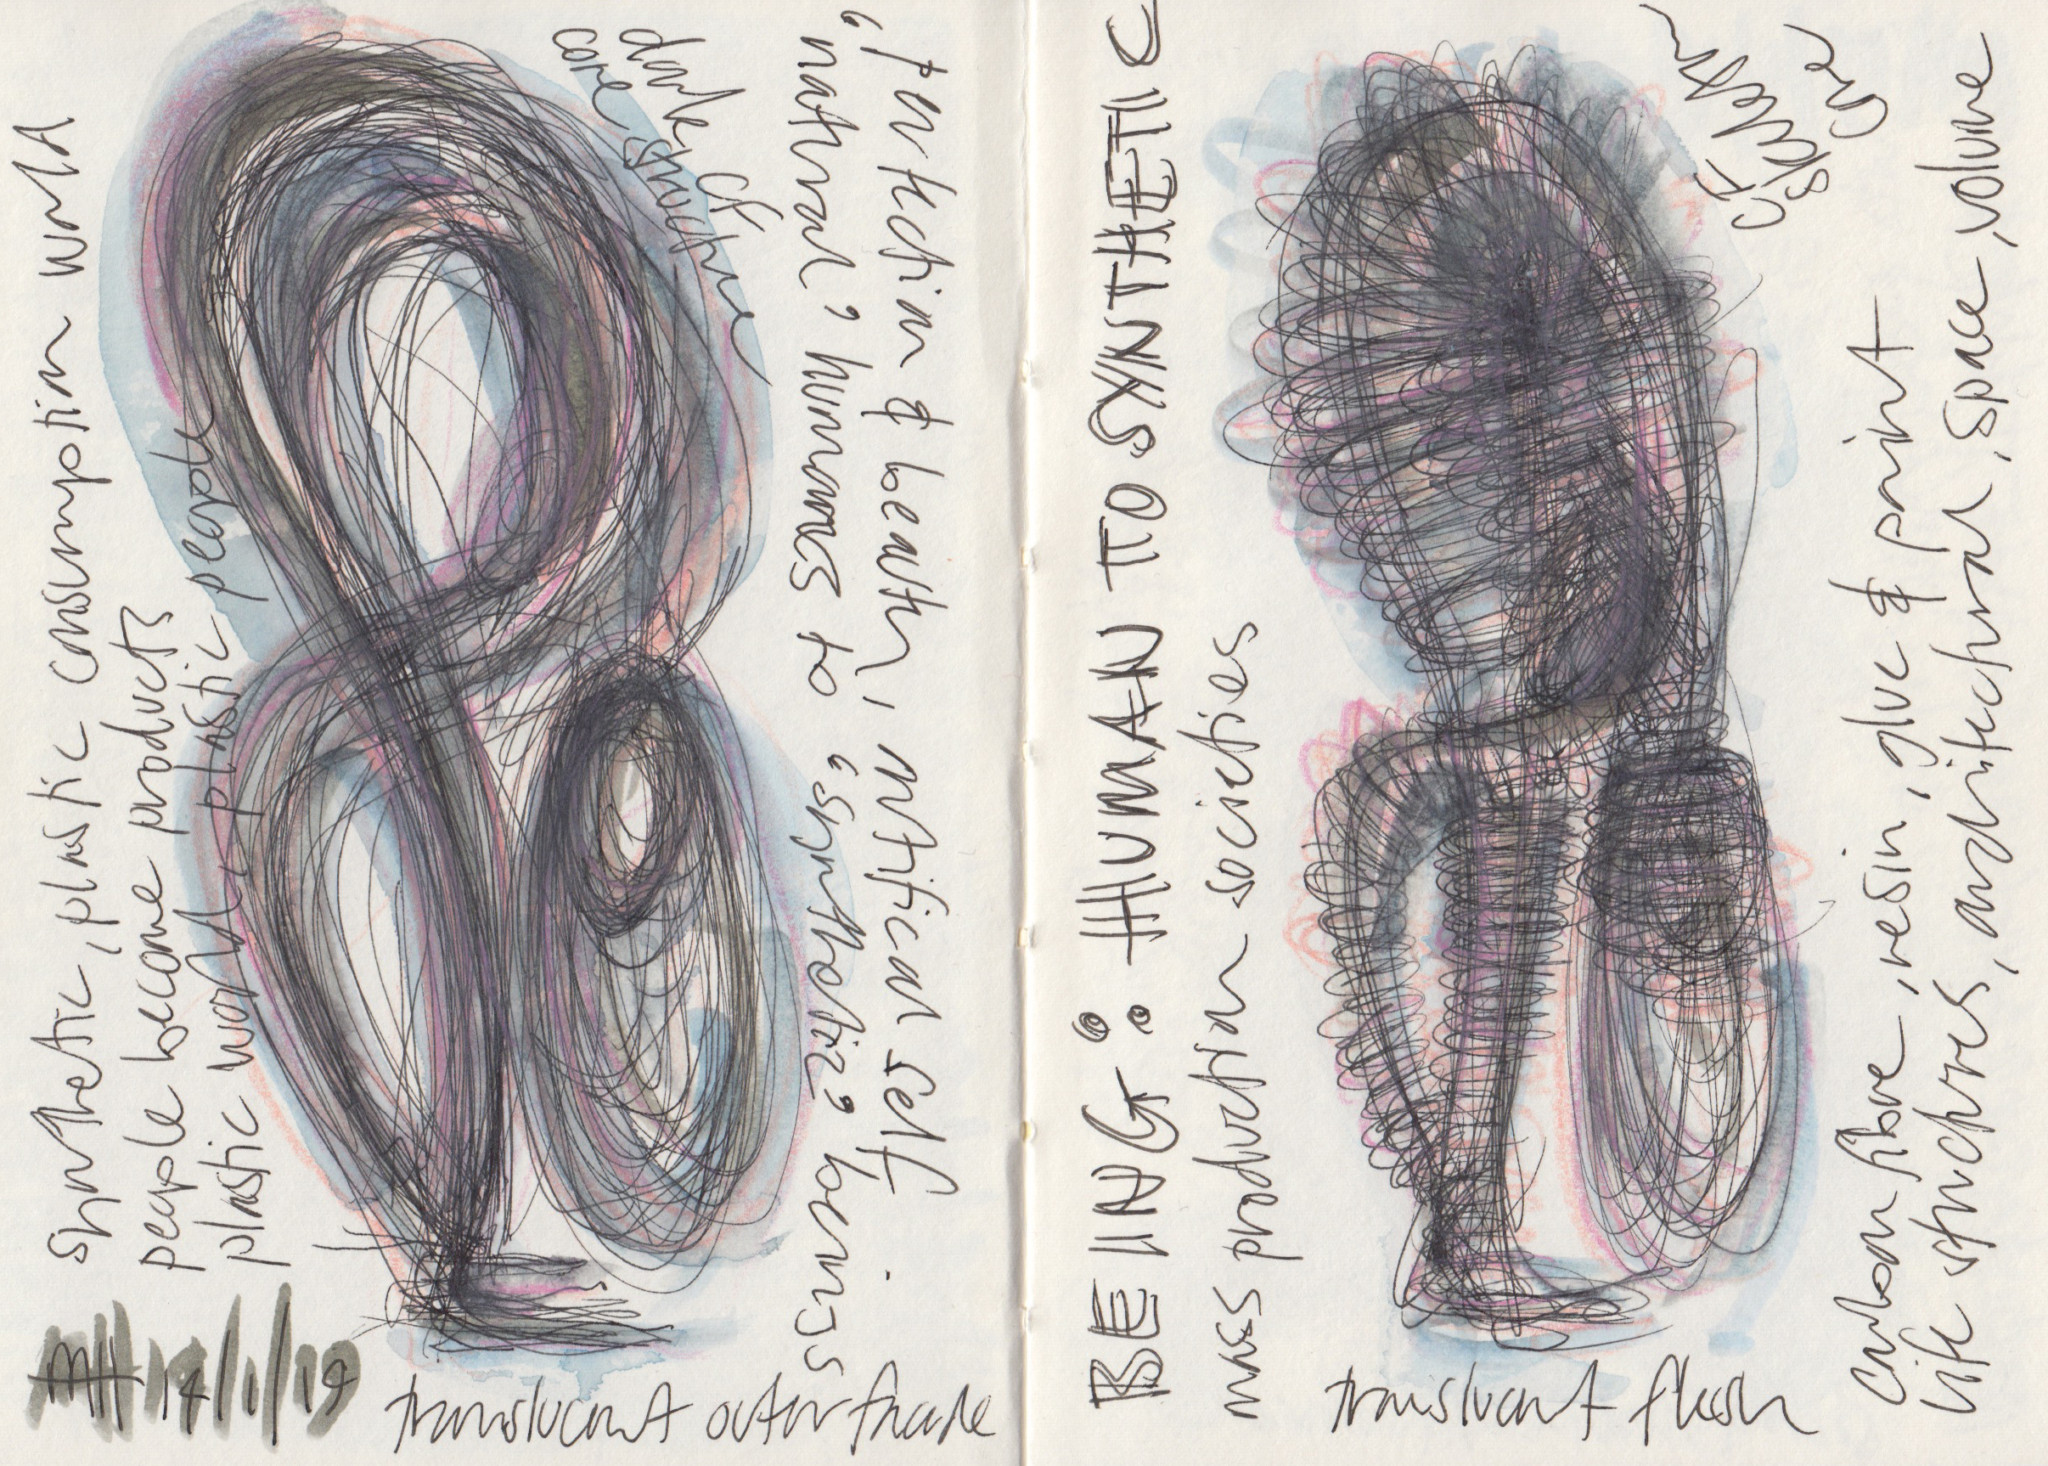 synthetic, plastic consumption world
people become products
plastic world, plastic people
dark CF
core, structure
'Perfection & beauty, artificial self.
natural' humanoes to 'synthetic' beings
MH 14/1/19
translucent outer facade
BEING: HUMAN TO SYNTHETIC
mass production societies
CF
skeleton
core
translucent flesh
carbon fibre, resin, glue & paint
life structures, architectural, space, volume